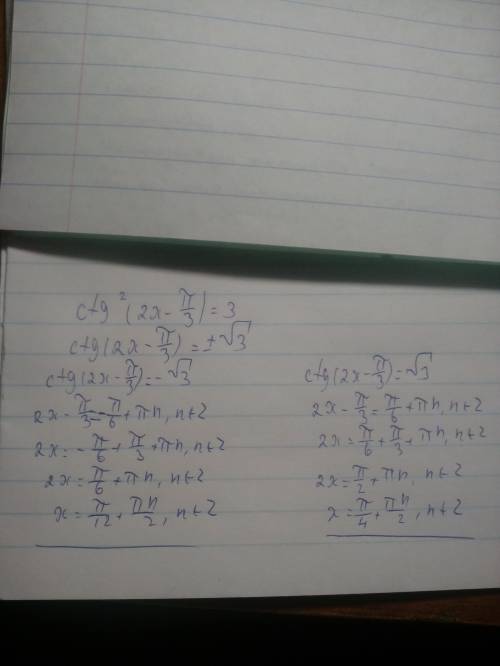 ctg²(2x - π/3) = 3
ctg(2x - π/3) = ±√3
ctg(2x - π/3) = -√3
2x - π/3 = -π/6 + πn, n∈Z
2x = -π/6 + π/3 + πn, n∈Z
2x = π/6 + πn, n∈Z
x = π/12 + πn/2, n∈Z
ctg(2x - π/3) = √3
2x - π/3 = π/6 + πn, n∈Z
2x = π/6 + π/3 + πn, n∈Z
2x = π/2 + πn, n∈Z
x = π/4 + πn/2, n∈Z